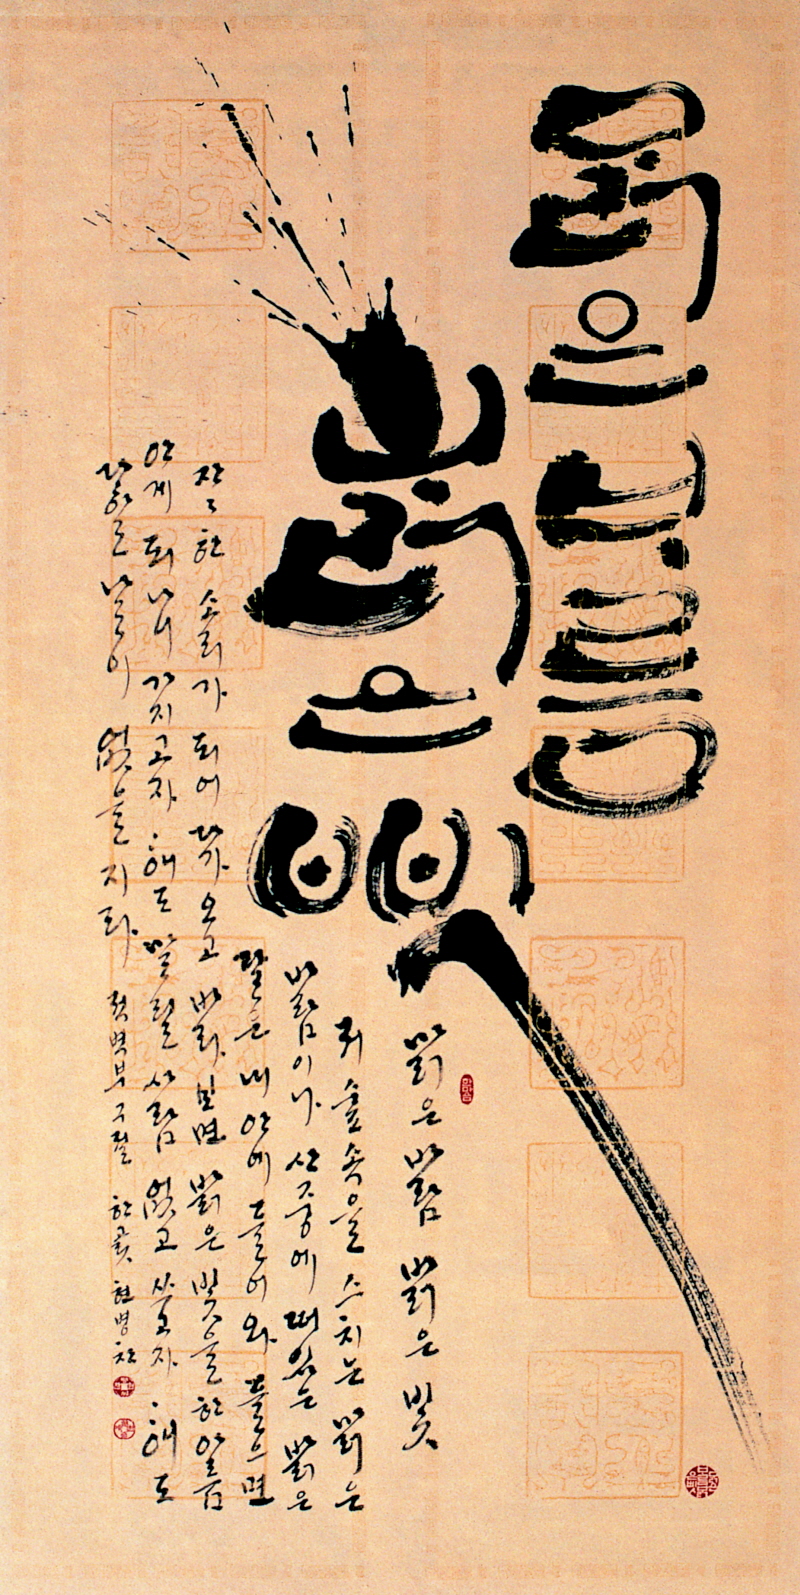 맑은 바람
밝은 빛
맑은 바람 밝은 빛
저 솔숲을 스치는 맑은
바람이나 산중에 떠 있는 밝은
달은 내 안에 들어와 들으면
잔잔한 소리가 되어 다가오고 바라보면 밝은 빛을 한 아름
안게 되니 가지고자 해도 말릴 사람 없고 쓰고자 해도
다하는 날이 없을지라 적벽부 구절 한곬 현병찬